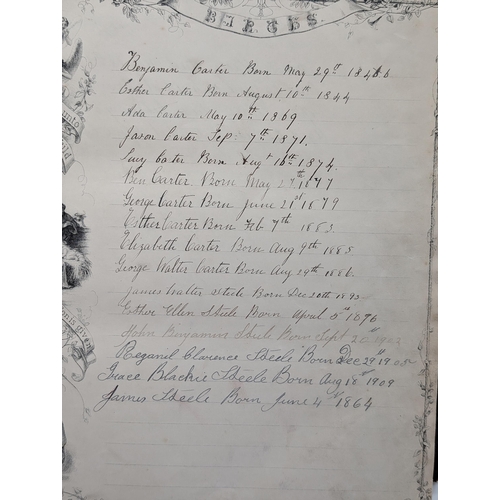 BIRTHS.
Benjamin Carter Born May 29th 1846
Esther Carter Born August 10th 1844
Ada Carter May 10th 1869
Jason Carter Sep 7th 1871.
Lucy Carter Born Augt 16th 1874.
Ben Carter Born May 27th 1877
George Carter Born June 21st 1879
Esther Carter Born Feb 7th 1883.
Elizabeth Carter Born Aug 9th 1885
George Walter Carter Born Aug 29th 1886
James Walter Steele Born Dec 20th 1893
Esther Ellen Steele Born April 5th 1896
John Benjamin Steele Born Sept 1902
Reganil Clarence Steele Born Dec 29th 1905
Grace Blackie Steele Born Aug 18th 1909
James Steele Born June 4th 1864